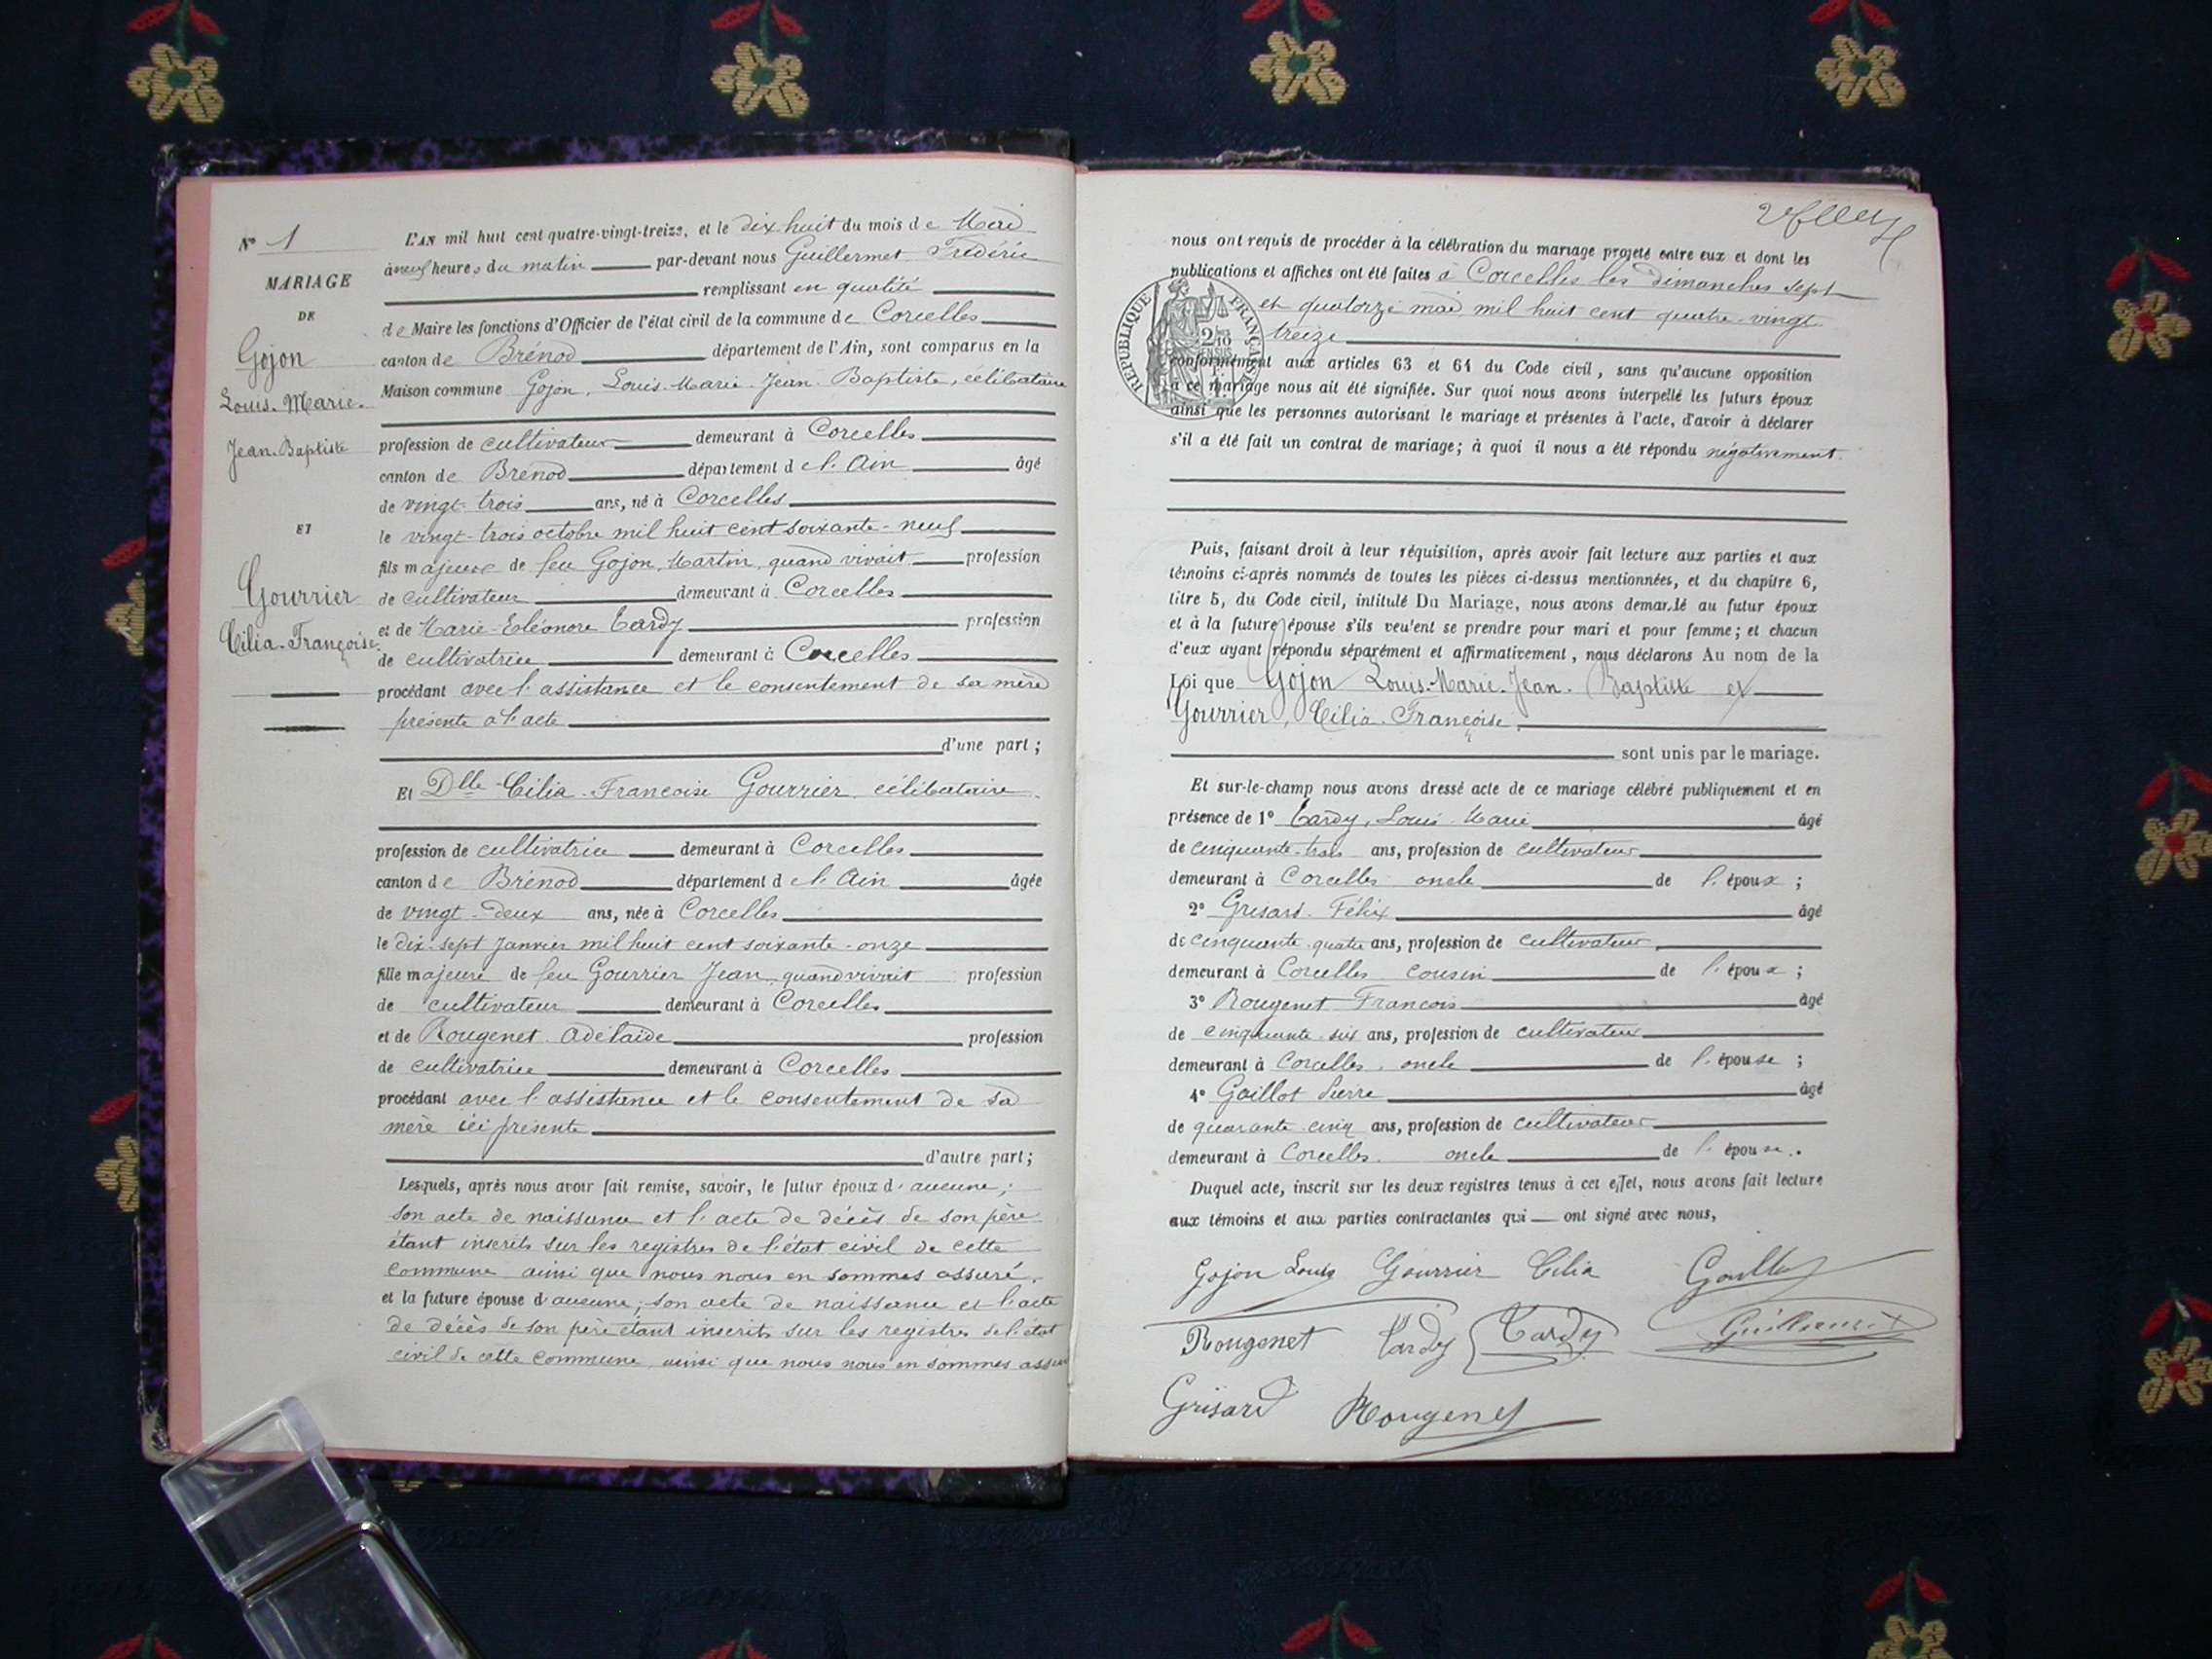 N° 1
MARIAGE
DE
Gojon
Louis-Marie-
Jean-Baptiste
ET
Gourrier
Cilia-Françoise
L'AN mil huit cent quatre-vingt-treize, et le dix-huit du mois de Mai
à neuf heures du matin par-devant nous Guillermet Frédéric
remplissant en qualité
de Maire les fonctions d'Officier de l'état civil de la commune de Corcelles
canton de Brénod département de l'Ain, sont comparus en la
Maison commune Gojon, Louis-Marie-Jean-Baptiste, célibataire
profession de cultivateur demeurant à Corcelles
canton de Brénod département de l'Ain âgé
de vingt-trois ans, né à Corcelles
le vingt-trois octobre mil huit cent soixante-neuf
fils majeur de feu Gojon, Martin, quand vivait profession
de cultivateur demeurant à Corcelles
et de Marie-Eléonore Tardy profession
de cultivatrice demeurant à Corcelles
procédant avec l'assistance et le consentement de sa mère
présente à l'acte
d'une part ;
Et Dlle Cilia-Françoise Gourrier, célibataire
profession de cultivatrice demeurant à Corcelles
canton de Brénod département de l'Ain âgée
de vingt-deux ans, née à Corcelles
le dix-sept Janvier mil huit cent soixante-onze
fille majeure de feu Gourrier Jean, quand vivait profession
de cultivateur demeurant à Corcelles
et de Rougenet Adélaïde profession
de cultivatrice demeurant à Corcelles
procédant avec l'assistance et le consentement de sa
mère ici présente
d'autre part ;
Lesquels, après nous avoir fait remise, savoir, le futur époux d'aucune ;
son acte de naissance et l'acte de décès de son père
étant inscrits sur les registres de l'état civil de cette
commune ainsi que nous nous en sommes assuré,
et la future épouse d'aucune ; son acte de naissance et l'acte
de décès de son père étant inscrits sur les registres de l'état
civil de cette commune, ainsi que nous nous en sommes assuré
nous ont requis de procéder à la célébration du mariage projeté entre eux et dont les
publications et affiches ont été faites à Corcelles les dimanches sept
et quatorze mai mil huit cent quatre-vingt
treize
REPUBLIQUE FRANÇAISE
conformément aux articles 63 et 64 du Code civil, sans qu'aucune opposition
à ce mariage nous ait été signifiée. Sur quoi nous avons interpellé les futurs époux
ainsi que les personnes autorisant le mariage et présentes à l'acte, d'avoir à déclarer
s'il a été fait un contrat de mariage ; à quoi il nous a été répondu négativement.
Puis, faisant droit à leur réquisition, après avoir fait lecture aux parties et aux
témoins ci-après nommés de toutes les pièces ci-dessus mentionnées, et du chapitre 6,
titre 5, du Code civil, intitulé Du Mariage, nous avons demandé au futur époux
et à la future épouse s'ils veulent se prendre pour mari et pour femme ; et chacun
d'eux ayant répondu séparément et affirmativement, nous déclarons Au nom de la
Loi que Gojon Louis-Marie-Jean-Baptiste et
Gourrier, Cilia-Françoise,
sont unis par le mariage.
Et sur-le-champ nous avons dressé acte de ce mariage célébré publiquement et en
présence de 1° Tardy, Louis Marie âgé
de cinquante-trois ans, profession de cultivateur
demeurant à Corcelles oncle de l'époux ;
2° Grisard Félix âgé
de cinquante-quatre ans, profession de cultivateur
demeurant à Corcelles cousin de l'époux ;
3° Rougenet François âgé
de cinquante-six ans, profession de cultivateur
demeurant à Corcelles, oncle de l'épouse ;
4° Gaillot Pierre âgé
de quarante-cinq ans, profession de cultivateur
demeurant à Corcelles. oncle de l'épouse.
Duquel acte, inscrit sur les deux registres tenus à cet effet, nous avons fait lecture
aux témoins et aux parties contractantes qui ont signé avec nous,
Gojon Louis Gourrier Cilia Gaillot
Rougenet Tardy Tardy Guillermet
Grisard Rougenet